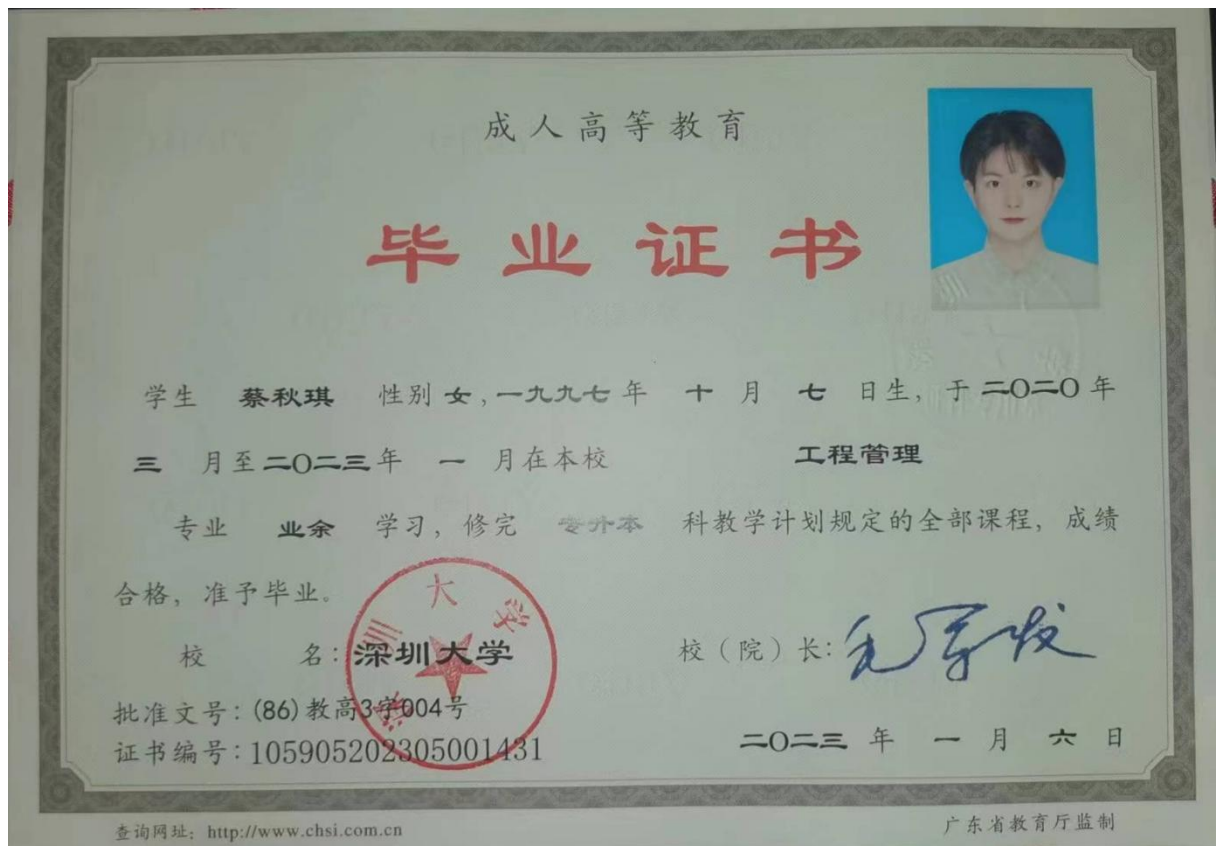 成人高等教育
毕业证书
学生 蔡秋琪 性别 女，一九九七年 十 月 七 日生，于二〇二〇年
三 月至二〇二三年 一 月在本校 工程管理
专业 业余 学习，修完 专升本 科教学计划规定的全部课程，成绩
合格，准予毕业。
深圳大学
校 名：深圳大学 校（院）长：毛军发
批准文号：(86)教高3字004号
证书编号：105905202305001431 二〇二三 年 一 月 六 日
查询网址：http://www.chsi.com.cn 广东省教育厅监制